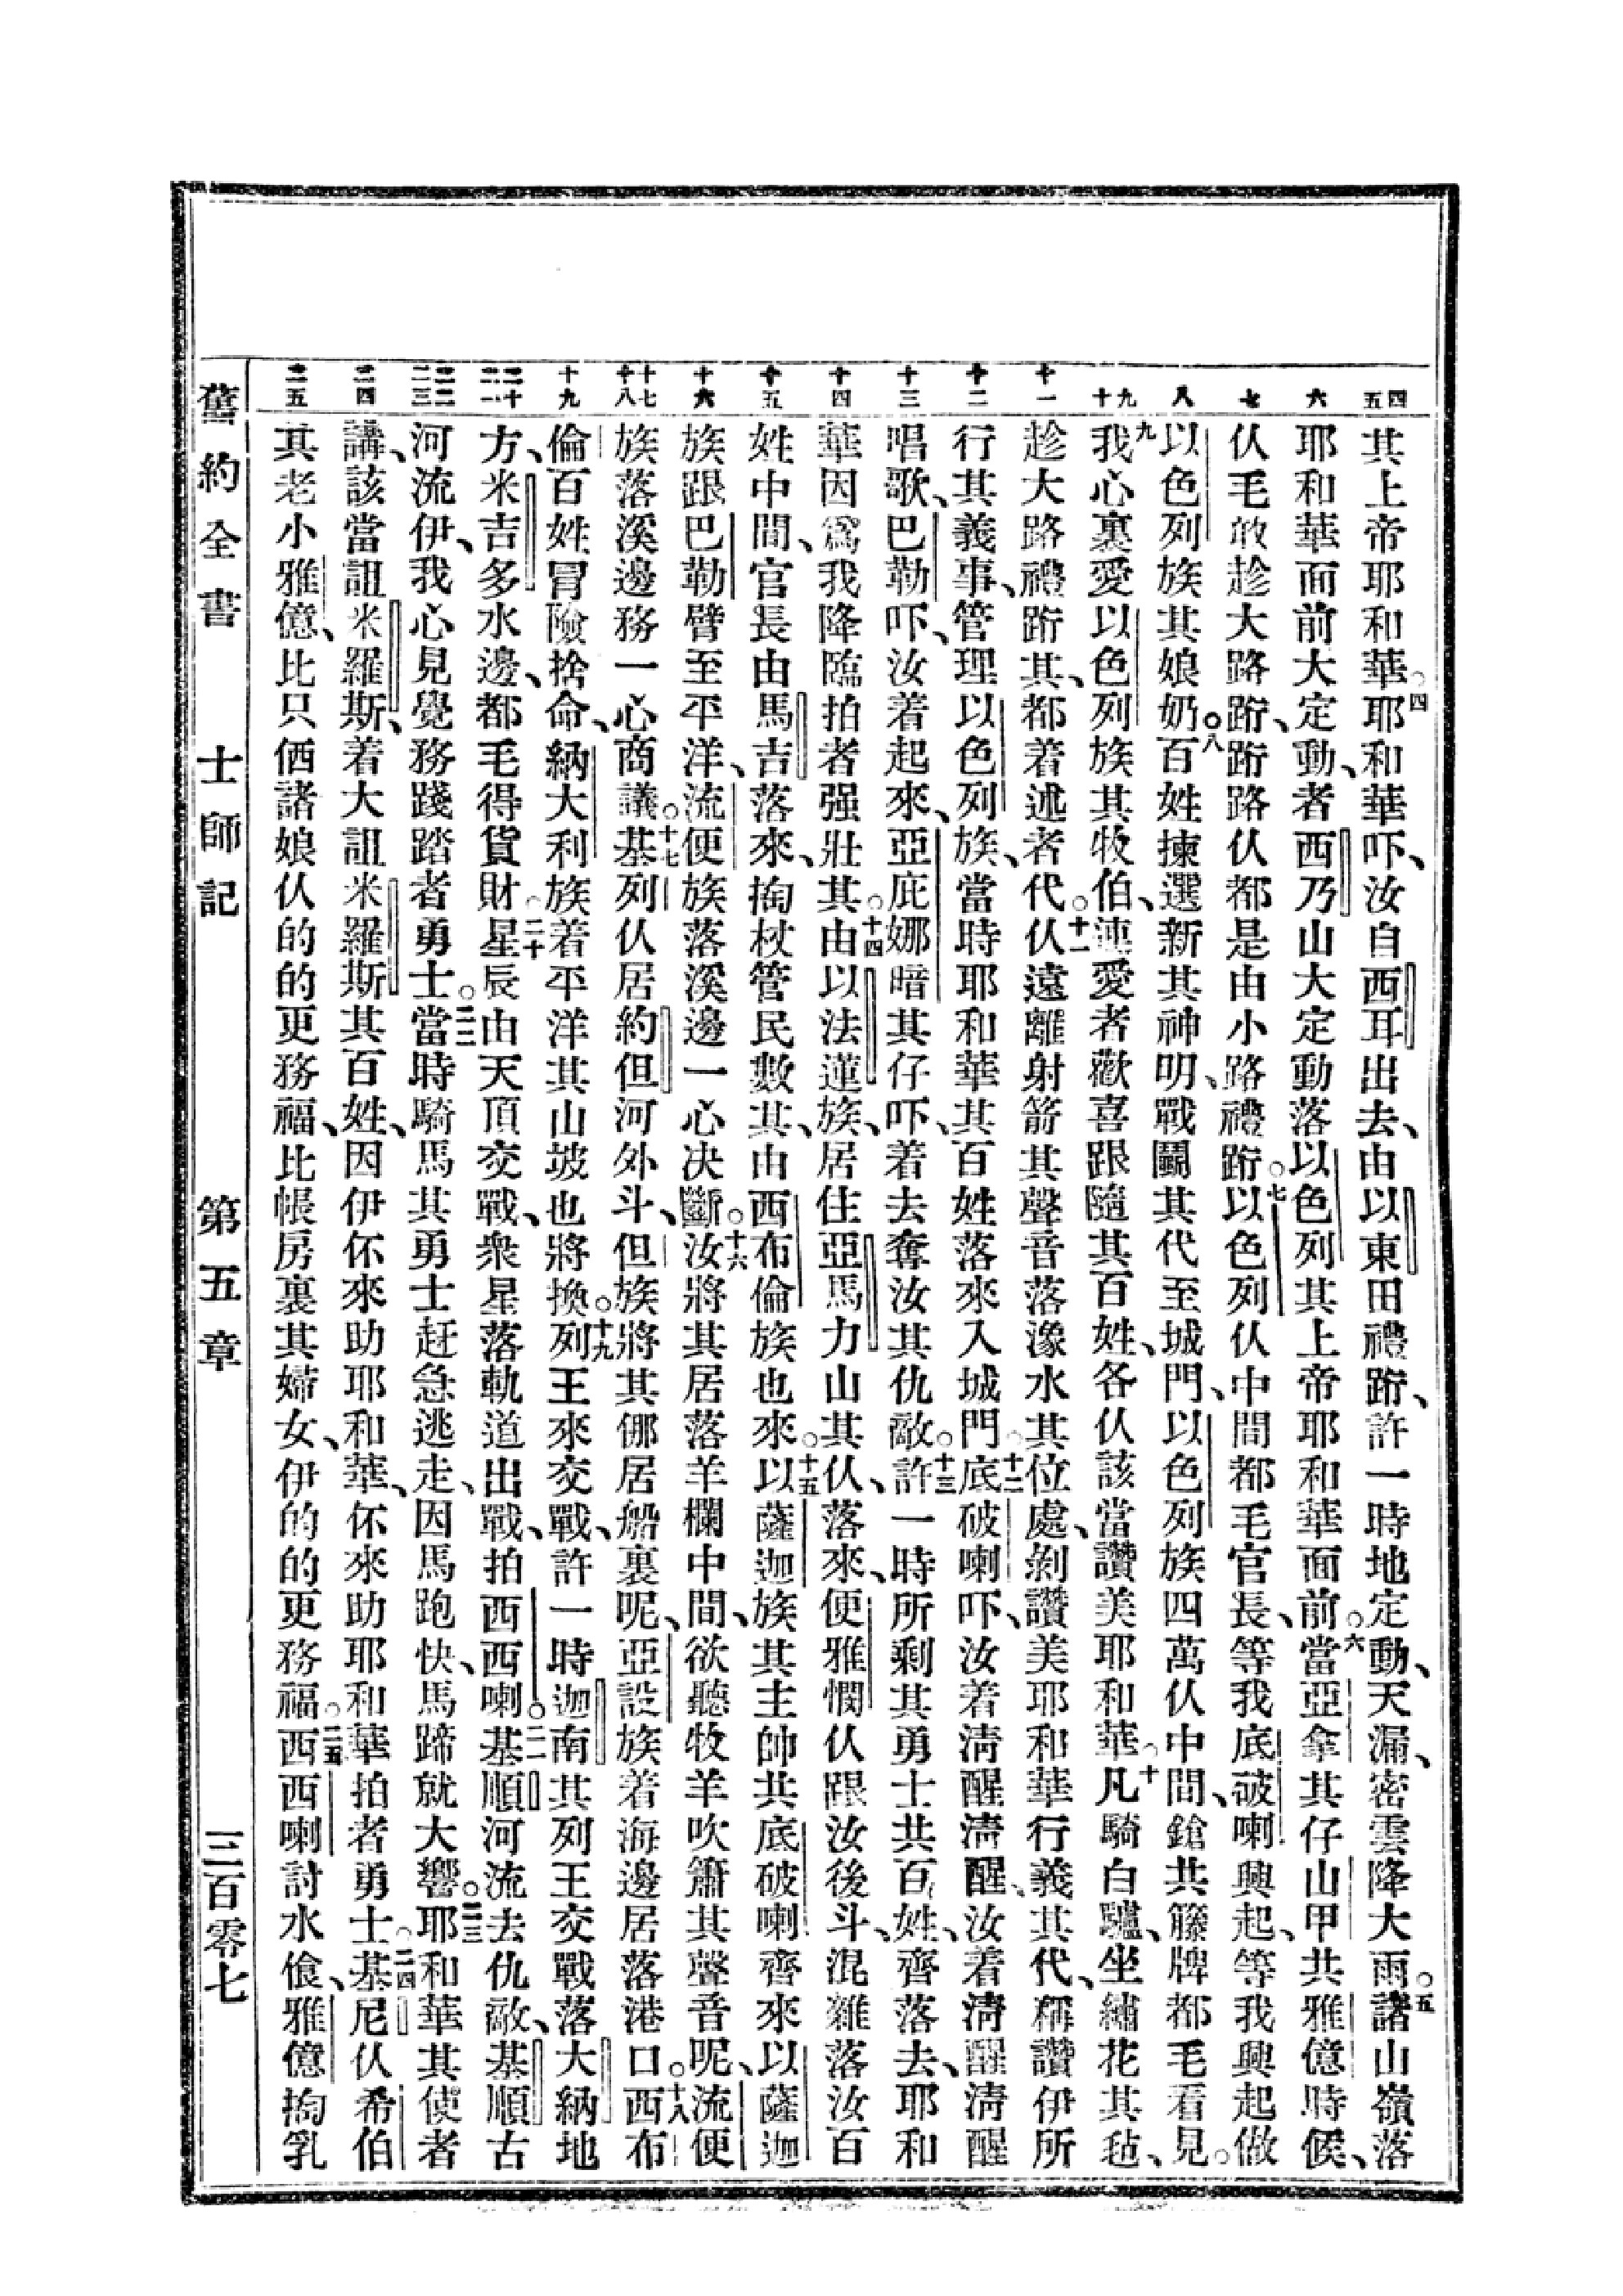 四 五 六 七 八 九 十 十一 十二 十三 十四 十五 十六 十七 十八 十九 二十 二一 二二 二三 二四 二五
其上帝耶和華。四耶和華吓、汝自西耳出去、由以東田禮跻、許一時地定動、天漏、密雲降大雨。五諸山嶺落
耶和華面前大定動、者西乃山大定動落以色列其上帝耶和華面前。六當亞拿其仔山甲共雅億時候、
仈毛敢趁大路跻、跻路仈都是由小路禮跻。七以色列仈中間都毛官長、等我底破喇興起、等我興起做
以色列族其娘奶。八百姓揀選新其神明、戰鬬其代至城門、以色列族四萬仈中間、鎗共籐牌都毛看見。
九我心裏愛以色列族其牧伯、連愛者歡喜跟隨其百姓、各仈該當讚美耶和華。十凡騎白驢、坐繡花其毡、
趁大路禮跻其、都着述者代。十一仈遠離射箭其聲音落潒水其位處、剝讚美耶和華行義其代、稱讚伊所
行其義事、管理以色列族、當時耶和華其百姓落來入城門。十二底破喇吓、汝着淸醒淸醒、汝着淸醒淸醒
唱歌、巴勒吓、汝着起來、亞庇娜暗其仔吓、着去奪汝其仇敵。十三許一時所剩其勇士共百姓、齊落去、耶和
華因爲我降臨拍者强壯其。十四由以法蓮族、居住亞馬力山其仈、落來、便雅憫仈跟汝後斗、混雜落汝百
姓中間、官長由馬吉落來、掏杖管民數其、由西布倫族也來。十五以薩迦族其主帥共底破喇齊來、以薩迦
族跟巴勒臂至平洋、流便族落溪邊一心决斷。十六汝將其居落羊欄中間、欲聽牧羊吹簫其聲音呢、流便
族落溪邊務一心商議。十七基列仈居約但河外斗、但族將其㑚居船裏呢、亞設族着海邊居落港口。十八西布
倫百姓冒險捨命、納大利族着平洋其山坡也將換。十九列王來交戰、許一時迦南其列王交戰、落大納地
方、米吉多水邊、都毛得貨財。二十星辰由天頂交戰、衆星落軌道出戰、拍西西喇。二一基順河流去仇敵、基順古
河流伊、我心見覺務踐踏者勇士。二二當時騎馬其勇士赶急逃走、因馬跑快、馬蹄就大響。二三耶和華其使者
講、該當詛米羅斯、着大詛米羅斯其百姓、因伊伓來助耶和華、伓來助耶和華拍者勇士。二四基尼仈希伯
其老小雅億、比只𠲥諸娘仈的的更務福、比帳房裏其婦女、伊的的更務福。二五西西喇討水飮、雅億掏乳
舊約全書 士師記 第五章 三百零七